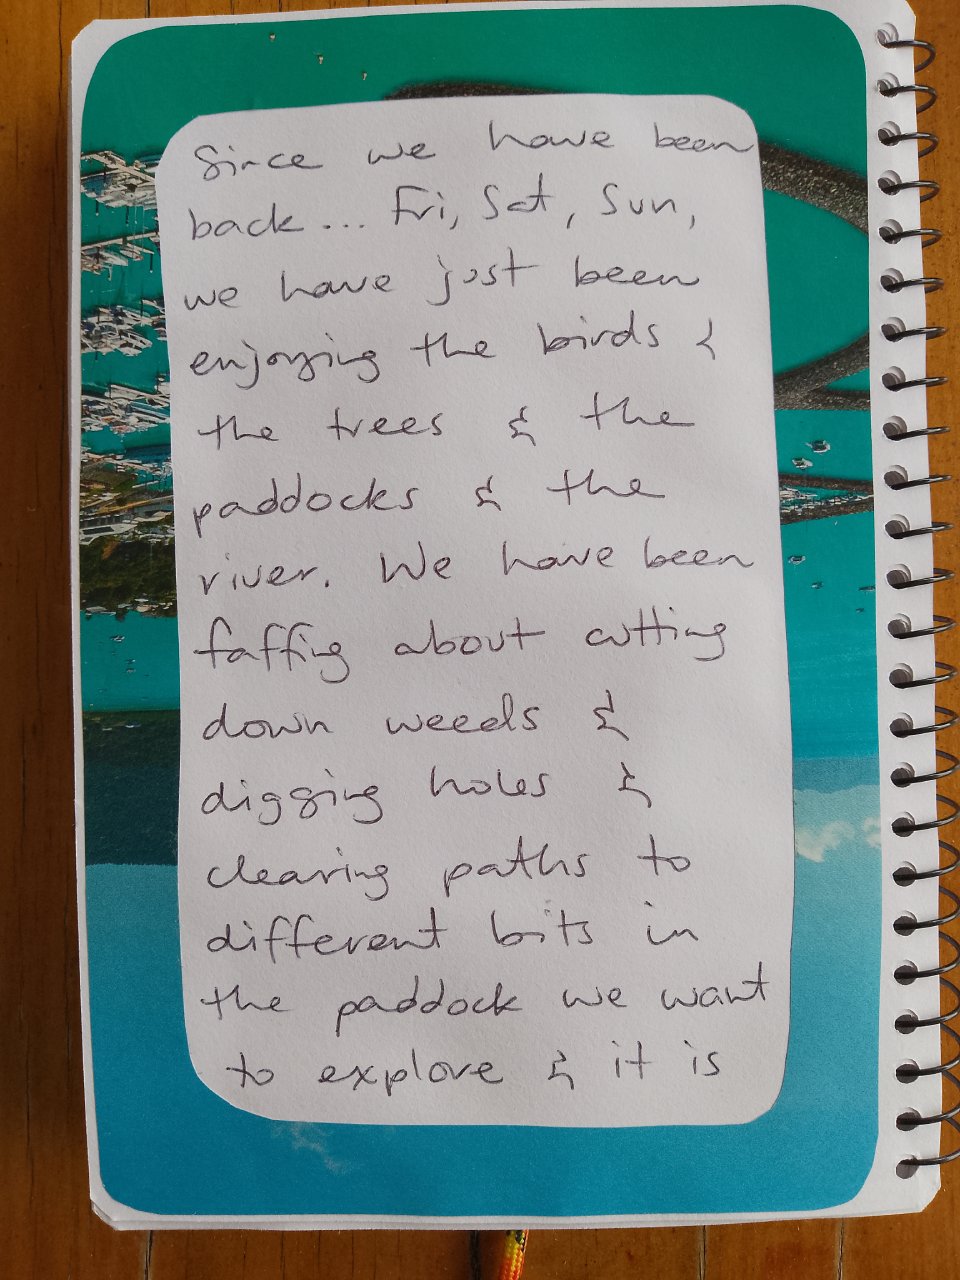 Since we have been
back... Fri, Sat, Sun,
we have just been
enjoying the birds &
the trees & the
paddocks & the
river. We have been
faffing about cutting
down weeds &
digging holes &
clearing paths to
different bits in
the paddock we want
to explore & it is